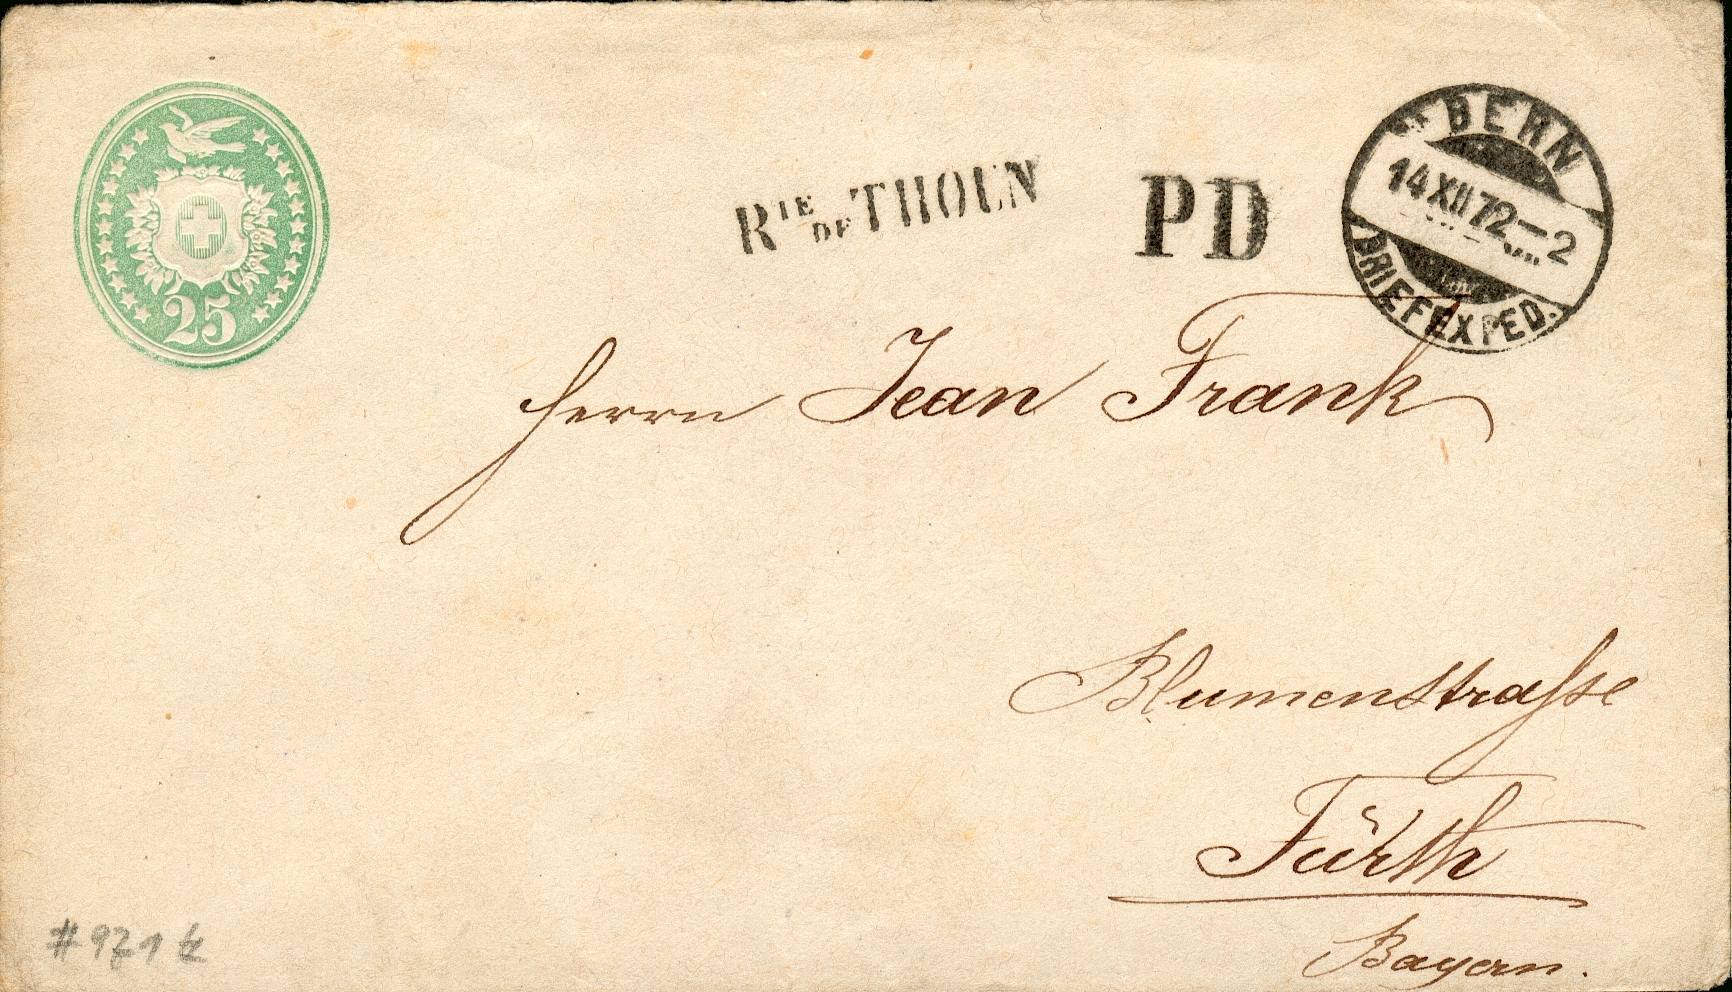 25
RIE DE THOUN
PD
BERN
14 XII 72 — 2
BRIEFEXPED.
Herrn Jean Frank
Blumenstraſse
Fürth
Bayern.